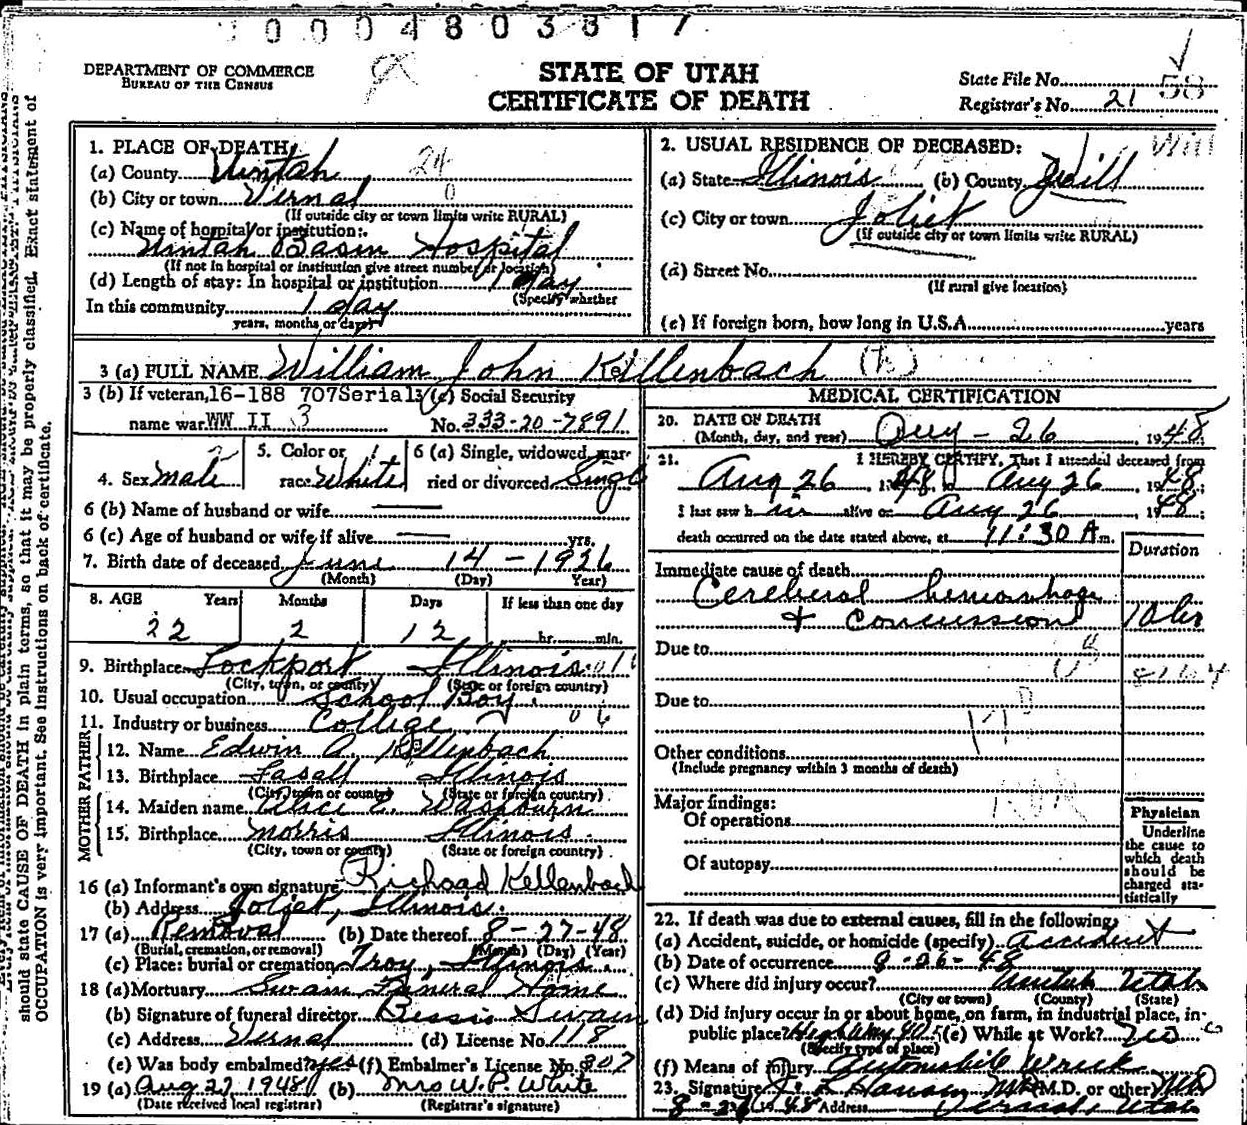 DEPARTMENT OF COMMERCE
BUREAU OF THE CENSUS
STATE OF UTAH
CERTIFICATE OF DEATH
State File No. 58
Registrar's No. 21
1. PLACE OF DEATH:
(a) County Uintah 24
(b) City or town Vernal 0
(If outside city or town limits write RURAL)
(c) Name of hospital or institution:
Uintah Basin Hospital
(If not in hospital or institution give street number or location)
(d) Length of stay: In hospital or institution 1 day
(Specify whether
In this community 1 day
years, months or days)
2. USUAL RESIDENCE OF DECEASED: Will
(a) State Illinois (b) County Will
(c) City or town Joliet
(If outside city or town limits write RURAL)
(d) Street No.
(If rural give location)
(e) If foreign born, how long in U.S.A. years
3 (a) FULL NAME William John Kellenbach
3 (b) If veteran, 16-188 707 Serial 3 (c) Social Security
name war WW II 3 No. 333-20-7891
4. Sex Male 5. Color or race White 6 (a) Single, widowed, married or divorced Single
6 (b) Name of husband or wife —
6 (c) Age of husband or wife if alive — yrs.
7. Birth date of deceased June 14 - 1926
(Month) (Day) (Year)
8. AGE Years Months Days If less than one day
22 2 12 hr. min.
9. Birthplace Lockport Illinois
(City, town, or county) (State or foreign country)
10. Usual occupation School Boy
11. Industry or business College
FATHER
12. Name Edwin A. Kellenbach
13. Birthplace Lasall Illinois
(City, town or county) (State or foreign country)
MOTHER
14. Maiden name Alice E. Washburn
15. Birthplace Morris Illinois
(City, town or county) (State or foreign country)
16 (a) Informant's own signature Richard Kellenbach
(b) Address Joliet, Illinois.
17 (a) Removal (b) Date thereof 8-27-48
(Burial, cremation, or removal) (Month) (Day) (Year)
(c) Place: burial or cremation Troy, Illinois.
18 (a) Mortuary Swain Funeral Home
(b) Signature of funeral director Bessie Swain
(c) Address Vernal (d) License No. 118
(e) Was body embalmed? yes (f) Embalmer's License No. 307
19 (a) Aug 27, 1948 (b) Mrs W.P. White
(Date received local registrar) (Registrar's signature)
MEDICAL CERTIFICATION
20. DATE OF DEATH
(Month, day, and year) Aug - 26, 1948
21. I HEREBY CERTIFY, That I attended deceased from
Aug 26, 1948, to Aug 26, 1948;
I last saw him alive on Aug 26, 1948;
death occurred on the date stated above, at 11:30 A m.
Duration
Immediate cause of death
Cerebral hemorrhage
+ Concussion 10 hr
Due to
Due to
Other conditions
(Include pregnancy within 3 months of death)
Major findings:
Of operations
Of autopsy
Physician
Underline
the cause to
which death
should be
charged sta-
tistically
22. If death was due to external causes, fill in the following:
(a) Accident, suicide, or homicide (specify) Accident
(b) Date of occurrence 8-26-48
(c) Where did injury occur? Uintah Utah
(City or town) (County) (State)
(d) Did injury occur in or about home, on farm, in industrial place, in
public place? Highway 40 (e) While at Work? No
(Specify type of place)
(f) Means of injury Automobile Wreck
23. Signature Hansen M.D. or other MD
8-26 1948 Address Vernal, Utah
should state CAUSE OF DEATH in plain terms, so that it may be properly classified. Exact statement of
OCCUPATION is very important. See instructions on back of certificate.